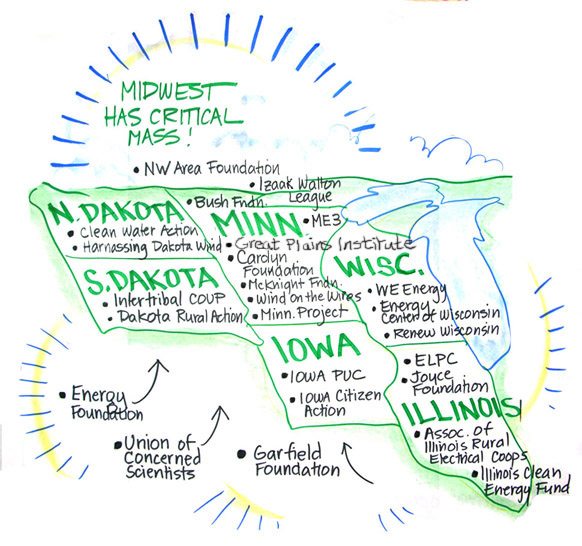 MIDWEST
HAS CRITICAL
MASS!
• NW Area Foundation
• Izaak Walton
League
• Bush Fndn.
N. DAKOTA
• Clean Water Action
• Harnassing Dakota Wind
S. DAKOTA
• Intertribal COUP
• Dakota Rural Action
MINN.
• ME3
• Great Plains Institute
• Carolyn
Foundation
• McKnight Fndn.
• Wind on the Wires
• Minn. Project
WISC.
• WE Energy
• Energy
Center of Wisconsin
• Renew Wisconsin
IOWA
• IOWA PUC
• IOWA Citizen
Action
• ELPC
• Joyce
Foundation
ILLINOIS
• Assoc. of
Illinois Rural
Electrical Coops
• Illinois Clean
Energy Fund
• Energy
Foundation
• Union of
Concerned
Scientists
• Garfield
Foundation